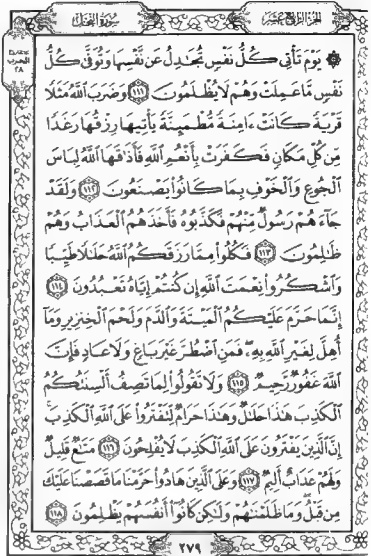 الجزء الرابع عشر
سورة النحل
الحزب
٢٨
۞ يَوْمَ تَأْتِي كُلُّ نَفْسٍ تُجَٰدِلُ عَن نَّفْسِهَا وَتُوَفَّىٰ كُلُّ
نَفْسٍ مَّا عَمِلَتْ وَهُمْ لَا يُظْلَمُونَ ١١١ وَضَرَبَ ٱللَّهُ مَثَلًا
قَرْيَةً كَانَتْ ءَامِنَةً مُّطْمَئِنَّةً يَأْتِيهَا رِزْقُهَا رَغَدًا
مِّن كُلِّ مَكَانٍ فَكَفَرَتْ بِأَنْعُمِ ٱللَّهِ فَأَذَٰقَهَا ٱللَّهُ لِبَاسَ
ٱلْجُوعِ وَٱلْخَوْفِ بِمَا كَانُوا۟ يَصْنَعُونَ ١١٢ وَلَقَدْ
جَآءَهُمْ رَسُولٌ مِّنْهُمْ فَكَذَّبُوهُ فَأَخَذَهُمُ ٱلْعَذَابُ وَهُمْ
ظَٰلِمُونَ ١١٣ فَكُلُوا۟ مِمَّا رَزَقَكُمُ ٱللَّهُ حَلَٰلًا طَيِّبًا
وَٱشْكُرُوا۟ نِعْمَتَ ٱللَّهِ إِن كُنتُمْ إِيَّاهُ تَعْبُدُونَ ١١٤
إِنَّمَا حَرَّمَ عَلَيْكُمُ ٱلْمَيْتَةَ وَٱلدَّمَ وَلَحْمَ ٱلْخِنزِيرِ وَمَآ
أُهِلَّ لِغَيْرِ ٱللَّهِ بِهِۦ فَمَنِ ٱضْطُرَّ غَيْرَ بَاغٍ وَلَا عَادٍ فَإِنَّ
ٱللَّهَ غَفُورٌ رَّحِيمٌ ١١٥ وَلَا تَقُولُوا۟ لِمَا تَصِفُ أَلْسِنَتُكُمُ
ٱلْكَذِبَ هَٰذَا حَلَٰلٌ وَهَٰذَا حَرَامٌ لِّتَفْتَرُوا۟ عَلَى ٱللَّهِ ٱلْكَذِبَ
إِنَّ ٱلَّذِينَ يَفْتَرُونَ عَلَى ٱللَّهِ ٱلْكَذِبَ لَا يُفْلِحُونَ ١١٦ مَتَٰعٌ قَلِيلٌ
وَلَهُمْ عَذَابٌ أَلِيمٌ ١١٧ وَعَلَى ٱلَّذِينَ هَادُوا۟ حَرَّمْنَا مَا قَصَصْنَا عَلَيْكَ
مِن قَبْلُ وَمَا ظَلَمْنَٰهُمْ وَلَٰكِن كَانُوٓا۟ أَنفُسَهُمْ يَظْلِمُونَ ١١٨
٢٧٩